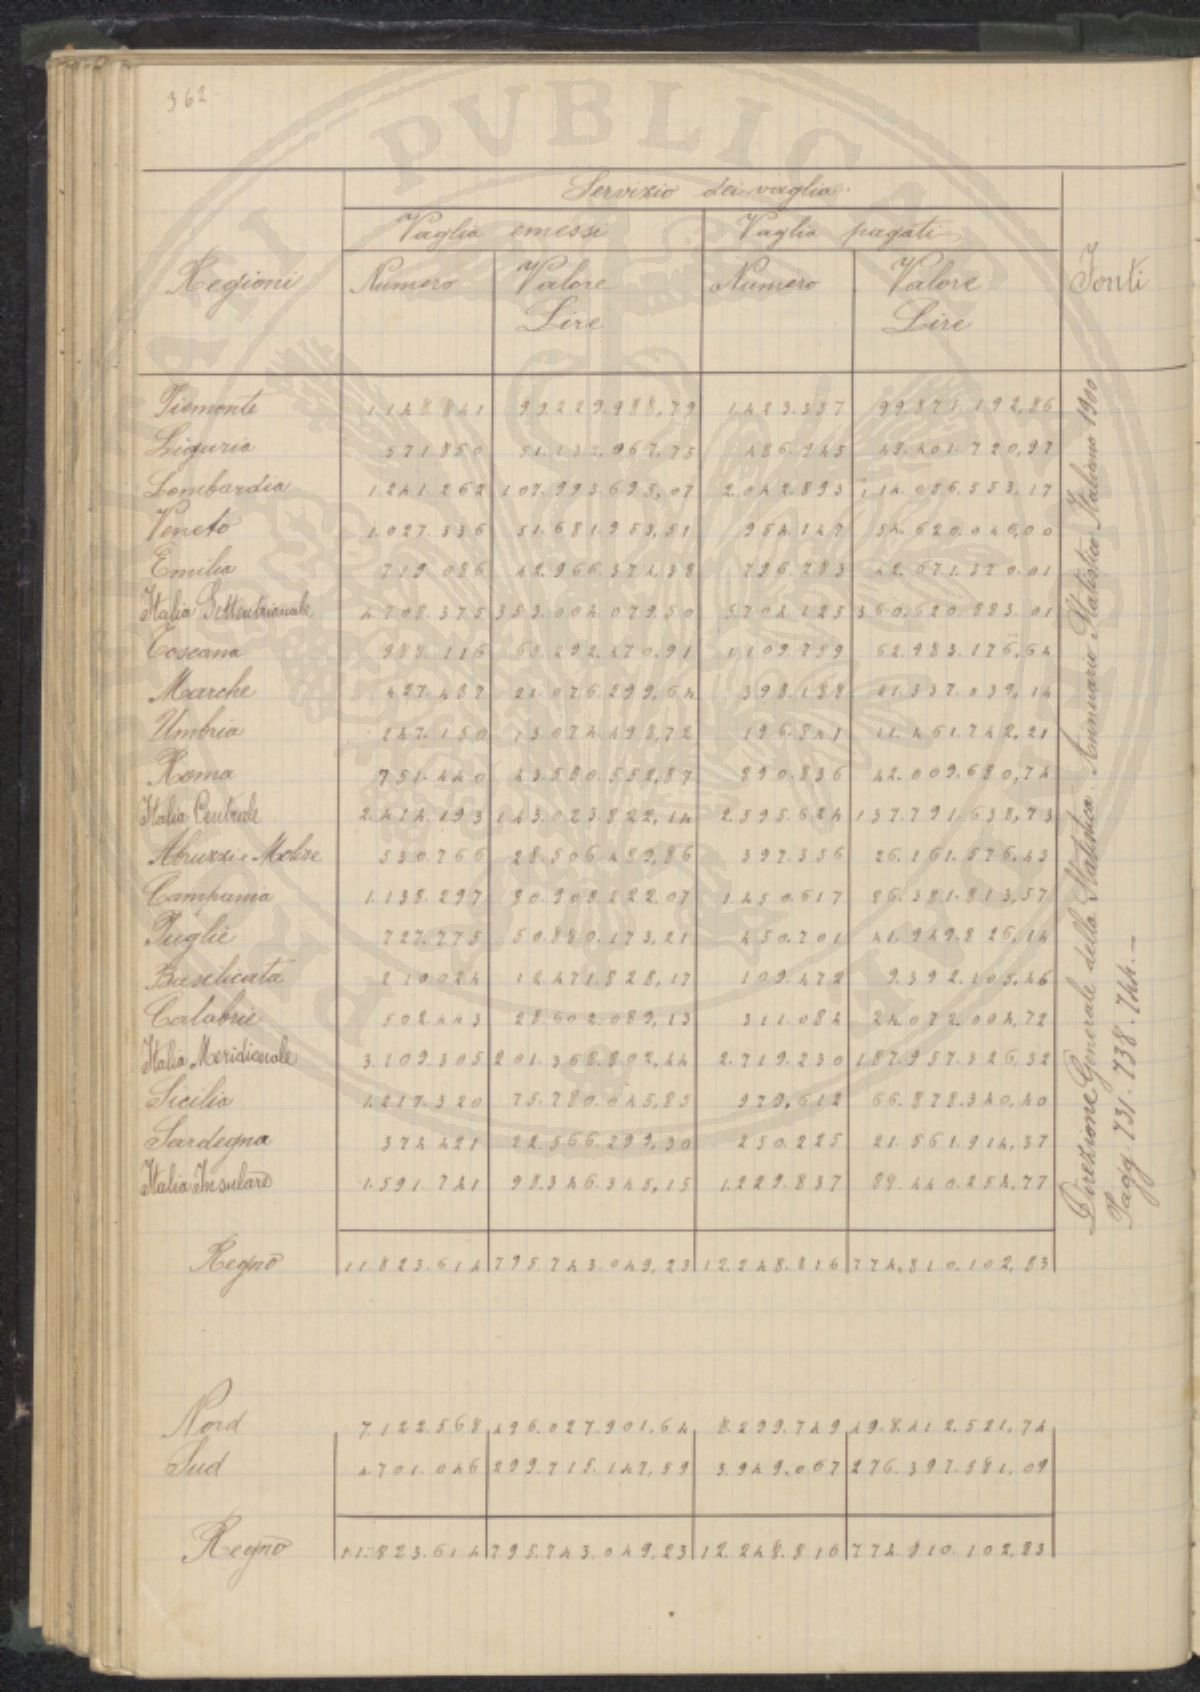 362
Servizio dei vaglia
Vaglia emessi Vaglia pagati
Regioni Numero Valore Lire Numero Valore Lire Fonti
Piemonte 1.148.841 99.229.988,79 1.423.357 99.871.192,86
Liguria 571.850 51.132.967,75 486.945 49.401.720,97
Lombardia 1.241.262 107.993.695,07 2.042.893 114.056.553,17
Veneto 1.027.336 51.681.953,51 954.147 54.620.046,00
Emilia 719.086 42.966.374,38 796.783 42.671.370,01
Italia Settentrionale 4.708.375 353.004.079,50 5.704.125 360.620.883,01
Toscana 988.116 65.292.470,91 1.109.759 62.983.176,64
Marche 427.487 21.076.299,64 398.188 21.337.039,14
Umbria 247.150 13.074.498,72 196.841 11.461.742,21
Roma 751.440 43.580.552,87 890.836 42.009.680,74
Italia Centrale 2.414.193 143.023.822,14 2.595.624 137.791.638,73
Abruzzi e Molise 530.766 28.506.489,86 397.356 26.161.576,43
Campania 1.138.297 80.908.222,07 1.450.617 86.381.813,57
Puglie 727.775 50.880.173,21 450.701 41.949.826,14
Basilicata 210.024 12.471.828,17 109.472 9.392.105,46
Calabrie 502.443 28.602.089,13 311.084 24.072.004,72
Italia Meridionale 3.109.305 201.368.802,44 2.719.230 187.957.326,32
Sicilia 1.217.320 75.780.045,85 979,612 66.878.340,40
Sardegna 374.421 22.566.299,30 250.225 21.561.914,37
Italia Insulare 1.591.741 98.346.345,15 1.229.837 88.440.254,77
Regno 11.823.614 795.743.049,23 12.248.816 774.810.102,83
Nord 7.122.568 496.027.901,64 8.299.749 498.412.521,74
Sud 4.701.046 299.715.147,59 3.949.067 276.397.581,09
Regno 11.823.614 795.743.049,23 12.248.816 774.810.102,83
Direzione Generale della Statistica. Annuario Statistico Italiano 1900
Pagg. 731-738-744.—